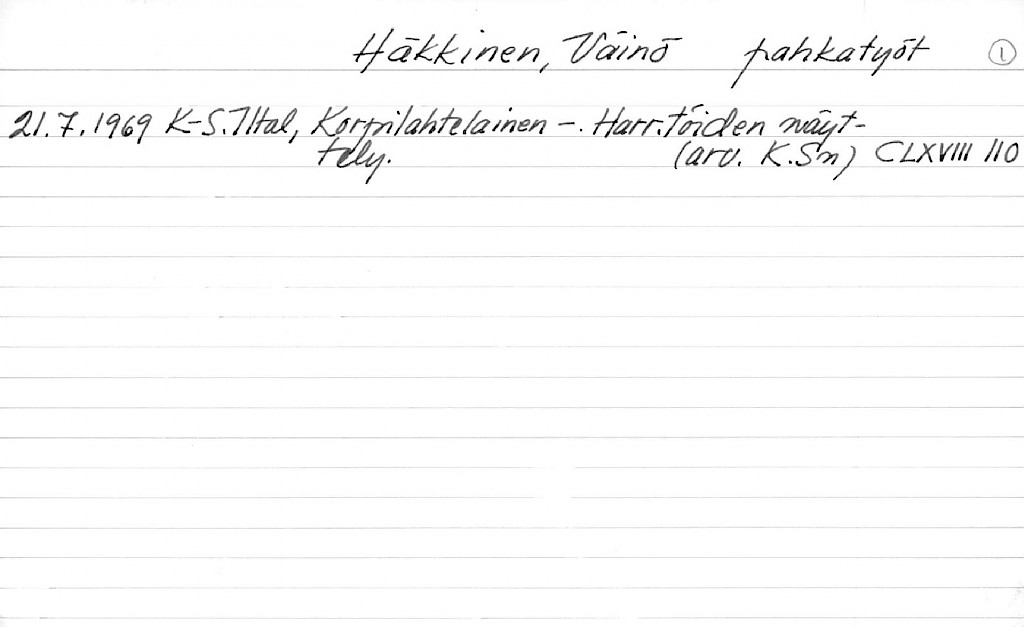 Häkkinen, Väinö pahkatyöt 1
21.7.1969 K-S. Iltal, Korpilahtelainen -. Harr.töiden näyt-
tely. (arv. K.Sm) CLXVIII 110